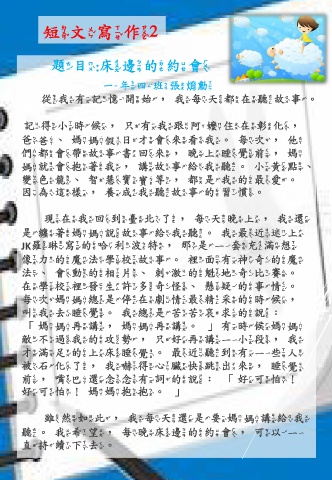 短文寫作2
題目:床邊的約會
一年四班張烱勳
從我有記憶開始，我每天都在聽故事。
記得小時候，只有我跟阿嬤住在彰化，
爸爸、媽媽假日才會來看我。每次，他
們都會帶故事書回來，晚上睡覺前，媽
媽就會抱著我，講故事給我聽。小黃點、
變色龍、智慧寶寶等，都是我的最愛。
因為這樣，養成我聽故事的習慣。
現在我回到臺北了，每天晚上，我還
是纏著媽媽說故事給我聽。我最近迷上
JK羅琳寫的哈利波特，那是一套充滿想
像力的魔法學校故事。裡面有神奇的魔
法、會動的相片、刺激的魁地奇比賽。
在學校裡發生許多奇怪、懸疑的事情。
每次媽媽總是停在劇情最精采的時候，
叫我去睡覺。我總是苦苦哀求的說：
「媽媽再講，媽媽再講。」有時候媽媽
敵不過我的攻勢，只好再講一小段，我
才滿足的上床睡覺。最近聽到有一些人
被石化了，我嚇得心臟快跳出來，睡覺
前，嘴巴還念念有詞的說：「好可怕！
好可怕！媽媽抱抱。」
雖然如此，我每天還是要媽媽講給我
聽。我希望，每晚床邊的約會，可以一
直持續下去。